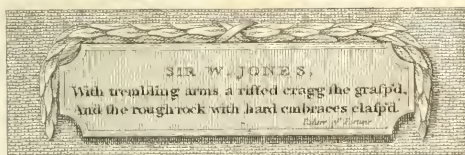 SIR W. JONES,
With trembling arms a rifted cragg ſhe graſp'd,
And the rough rock with hard embraces claſp'd.